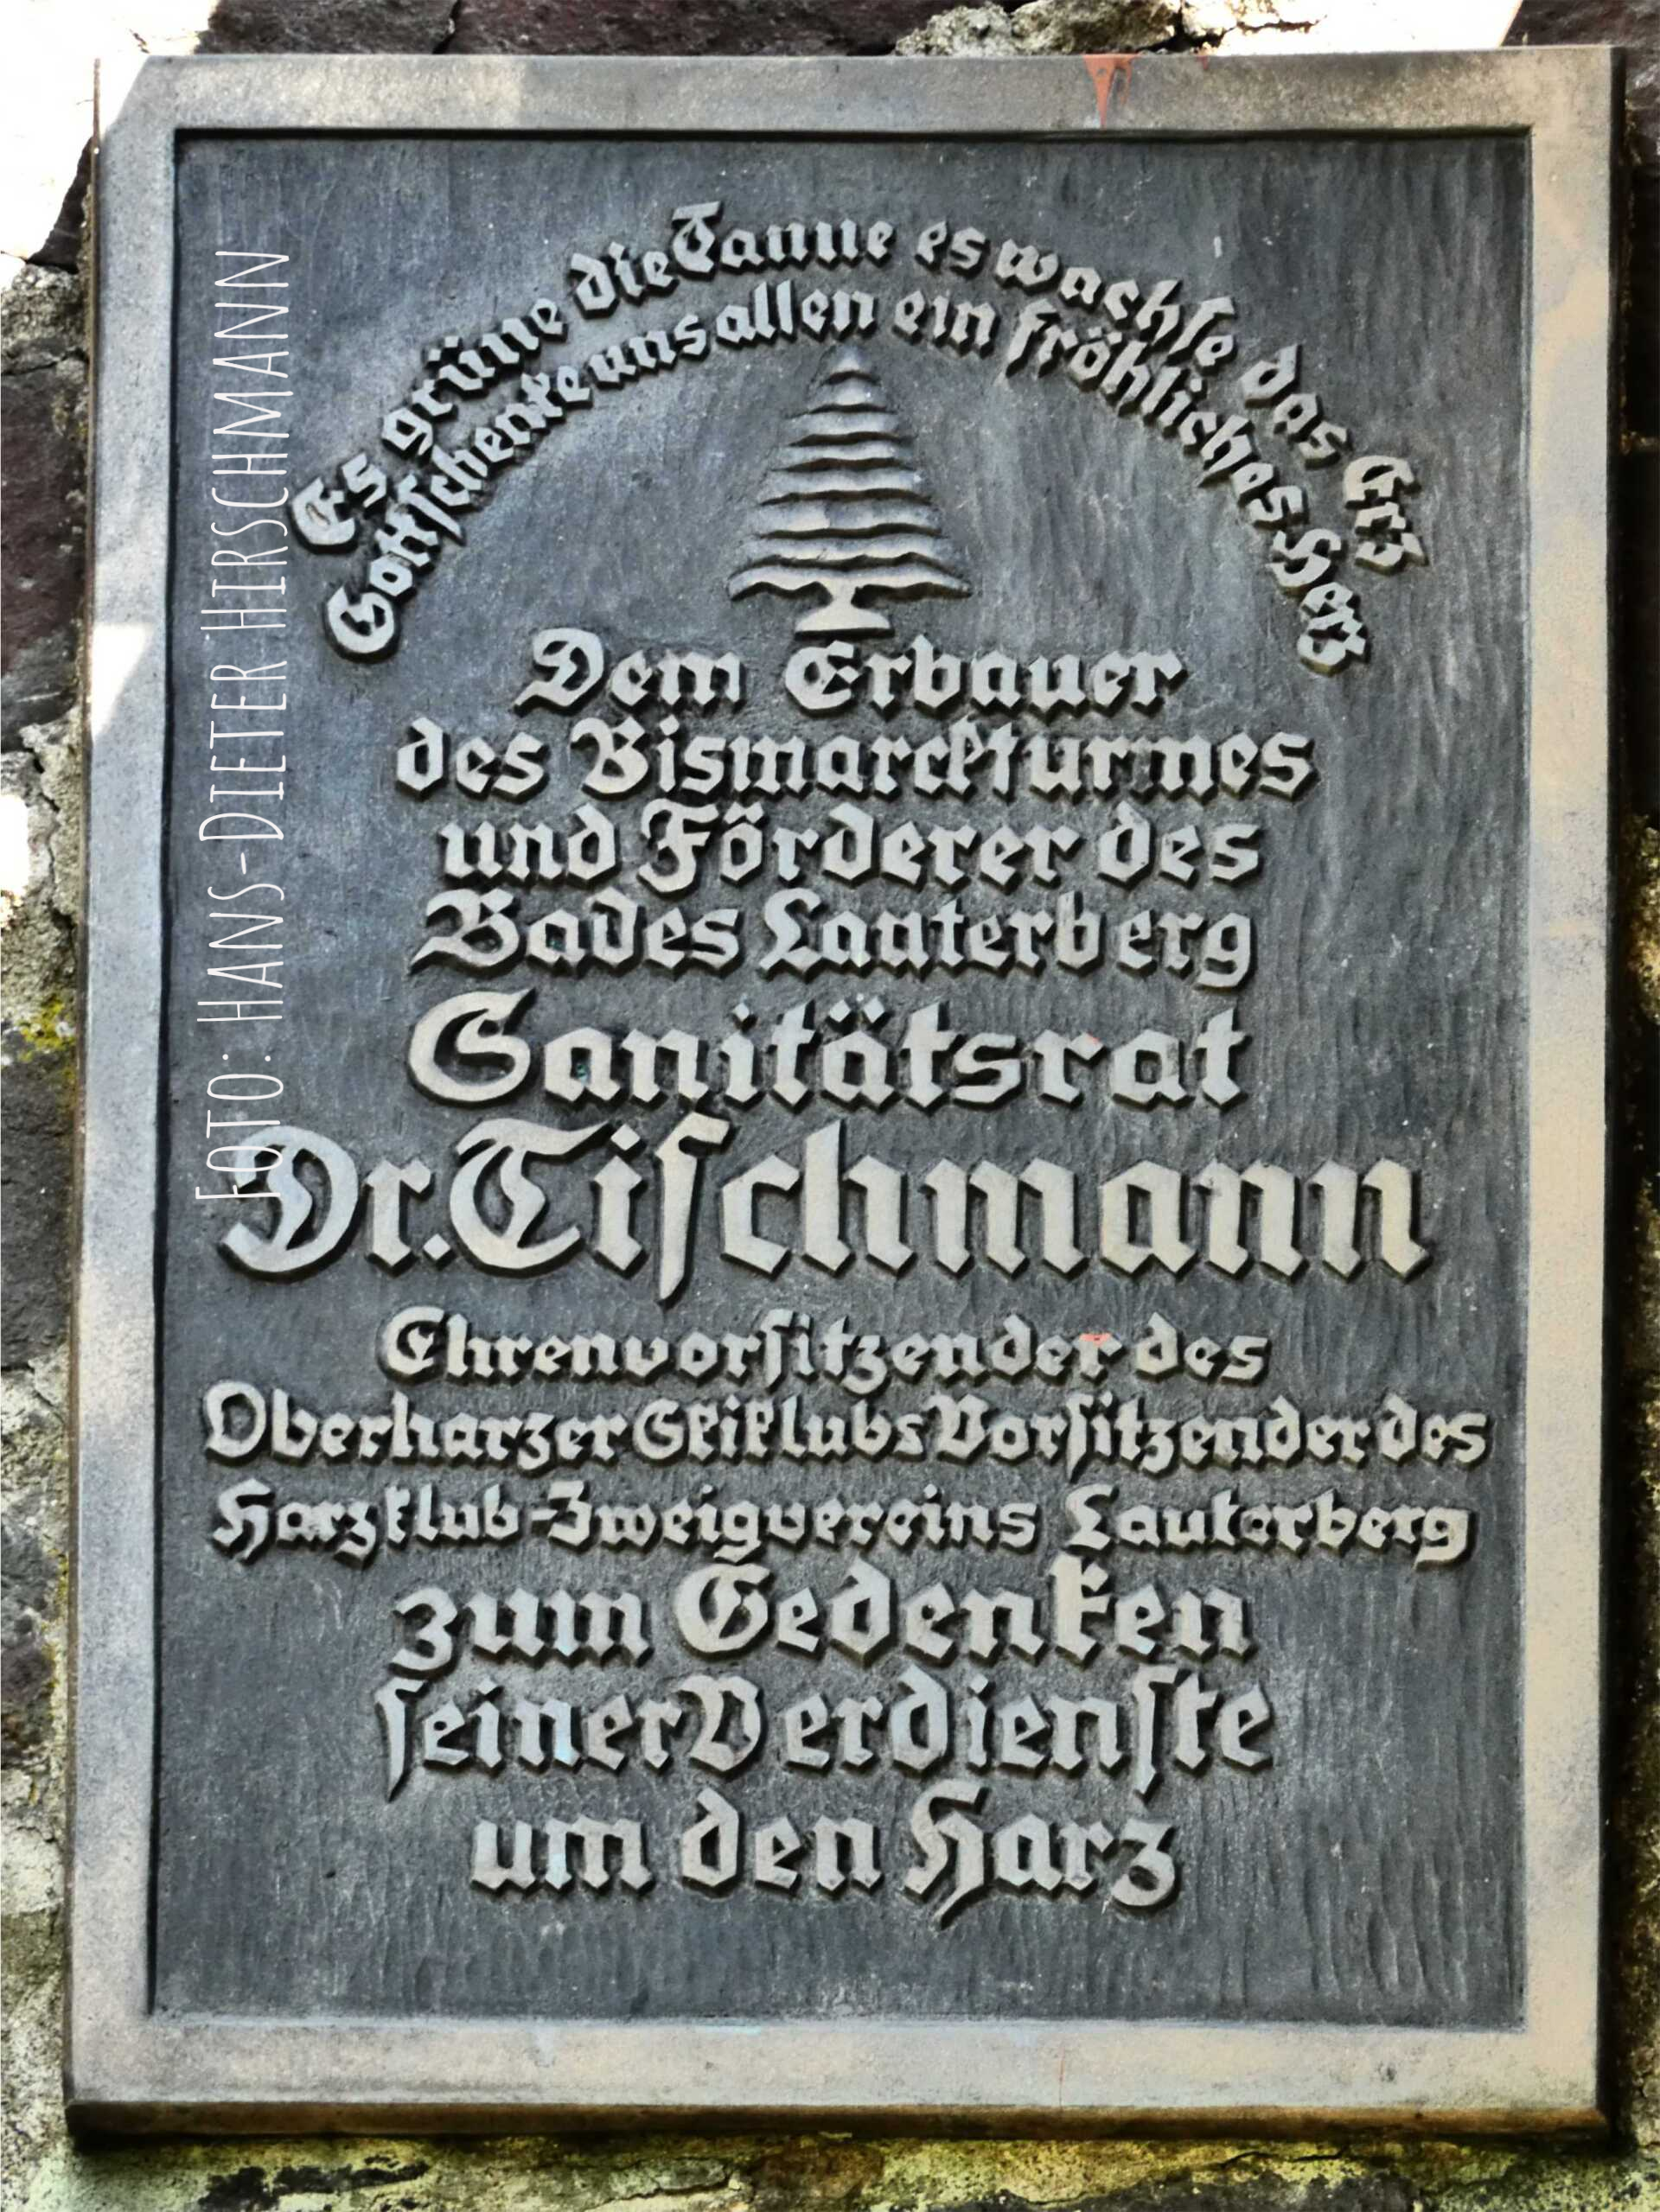 Es grüne die Tanne es wachse das Erz
Gott schenke uns allen ein fröhliches Herz
Dem Erbauer
des Bismarckturmes
und Förderer des
Bades Lauterberg
Sanitätsrat
Dr. Tischmann
Ehrenvorsitzender des
Oberharzer Skiklubs Vorsitzender des
Harzklub-Zweigvereins Lauterberg
zum Gedenken
seiner Verdienste
um den Harz
FOTO: HANS-DIETER HIRSCHMANN